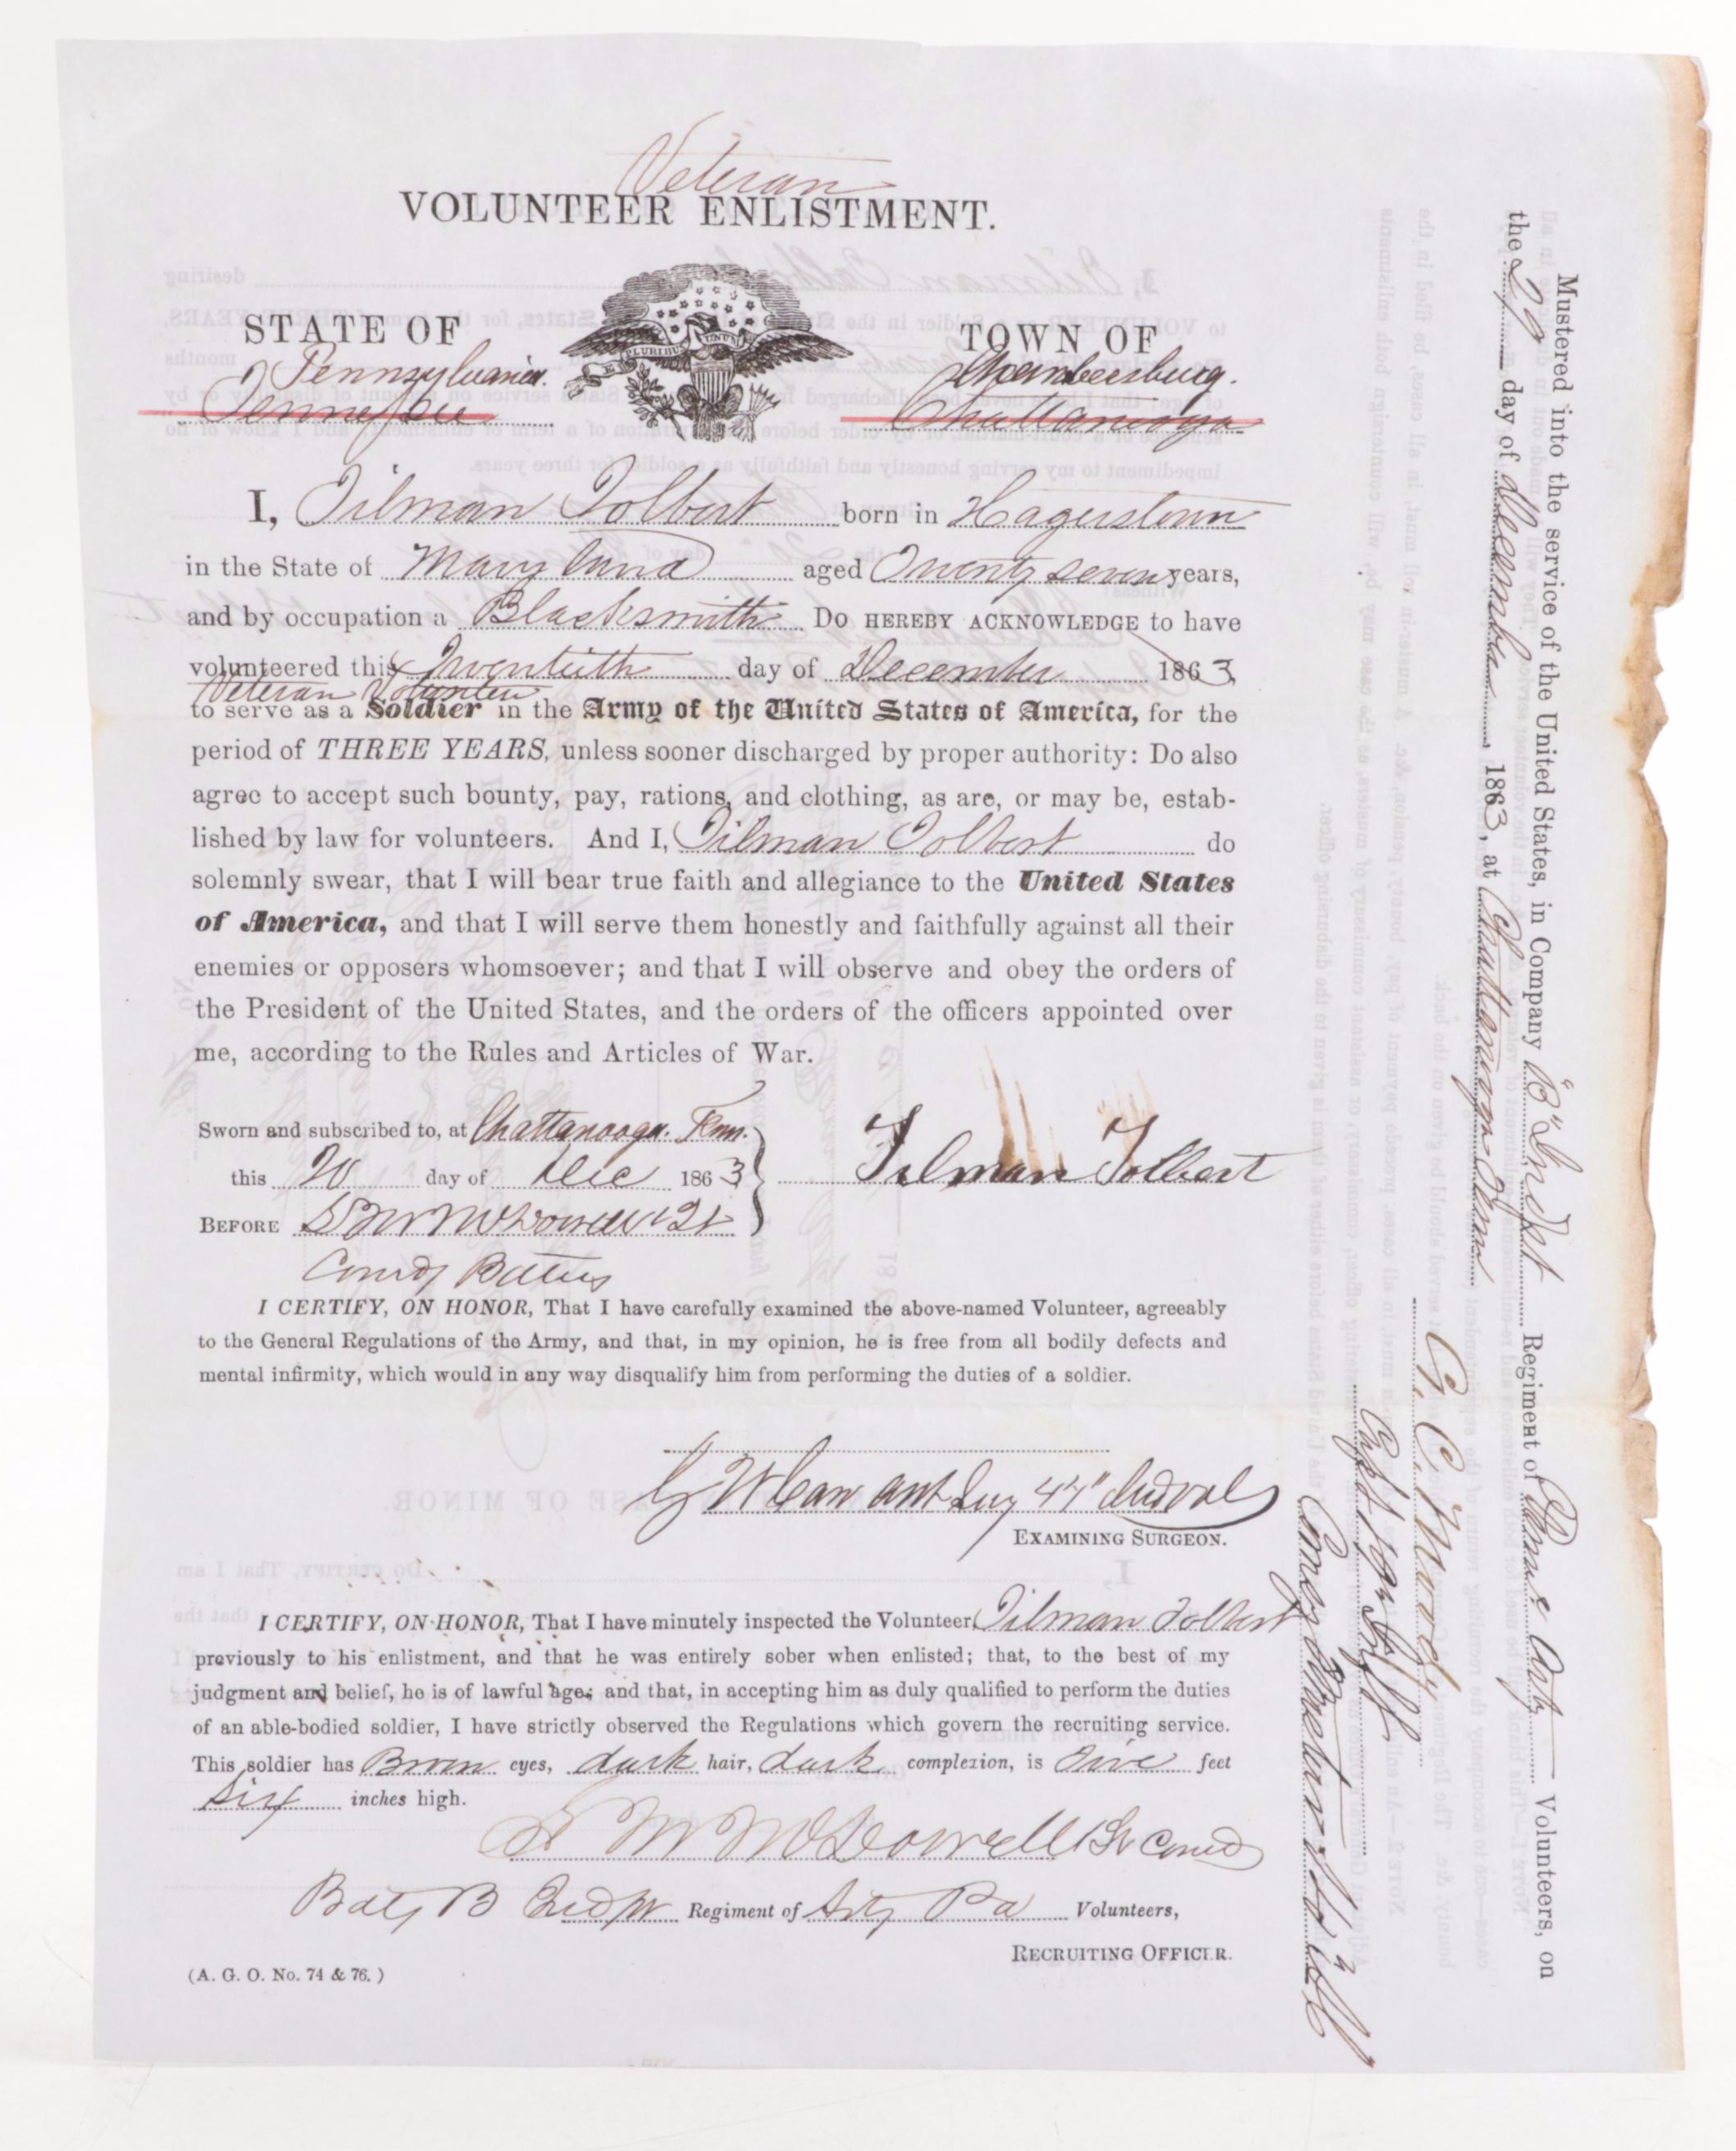 Veteran
VOLUNTEER ENLISTMENT.
STATE OF
TOWN OF
Pennsylvania.
Chambersburg.
Tennessee
Chattanooga
E PLURIBUS UNUM
I, Tilman Tolbert born in Hagerstown
in the State of Maryland aged Twenty seven years,
and by occupation a Blacksmith Do HEREBY ACKNOWLEDGE to have
volunteered this Twentieth day of December 1863,
Veteran Volunteer
to serve as a Soldier in the Army of the United States of America, for the
period of THREE YEARS, unless sooner discharged by proper authority: Do also
agree to accept such bounty, pay, rations, and clothing, as are, or may be, estab-
lished by law for volunteers. And I, Tilman Tolbert do
solemnly swear, that I will bear true faith and allegiance to the United States
of America, and that I will serve them honestly and faithfully against all their
enemies or opposers whomsoever; and that I will observe and obey the orders of
the President of the United States, and the orders of the officers appointed over
me, according to the Rules and Articles of War.
Sworn and subscribed to, at Chattanooga. Tenn.
this 20 day of Dec 1863
Tilman Tolbert
BEFORE S M McDowell
Comdg
I CERTIFY, ON HONOR, That I have carefully examined the above-named Volunteer, agreeably
to the General Regulations of the Army, and that, in my opinion, he is free from all bodily defects and
mental infirmity, which would in any way disqualify him from performing the duties of a soldier.
44"
EXAMINING SURGEON.
I CERTIFY, ON HONOR, That I have minutely inspected the Volunteer, Tilman Tolbert
previously to his enlistment, and that he was entirely sober when enlisted; that, to the best of my
judgment and belief, he is of lawful age; and that, in accepting him as duly qualified to perform the duties
of an able-bodied soldier, I have strictly observed the Regulations which govern the recruiting service.
This soldier has Brown eyes, dark hair, dark complexion, is Five feet
Six inches high.
S M McDowell
Baty B Regiment of Arty Pa Volunteers,
RECRUITING OFFICER.
(A. G. O. No. 74 & 76.)
Mustered into the service of the United States, in Company "B" Regiment of Arty Volunteers, on
the 29 day of December, 1863, at Chattanooga Tenn
Capt